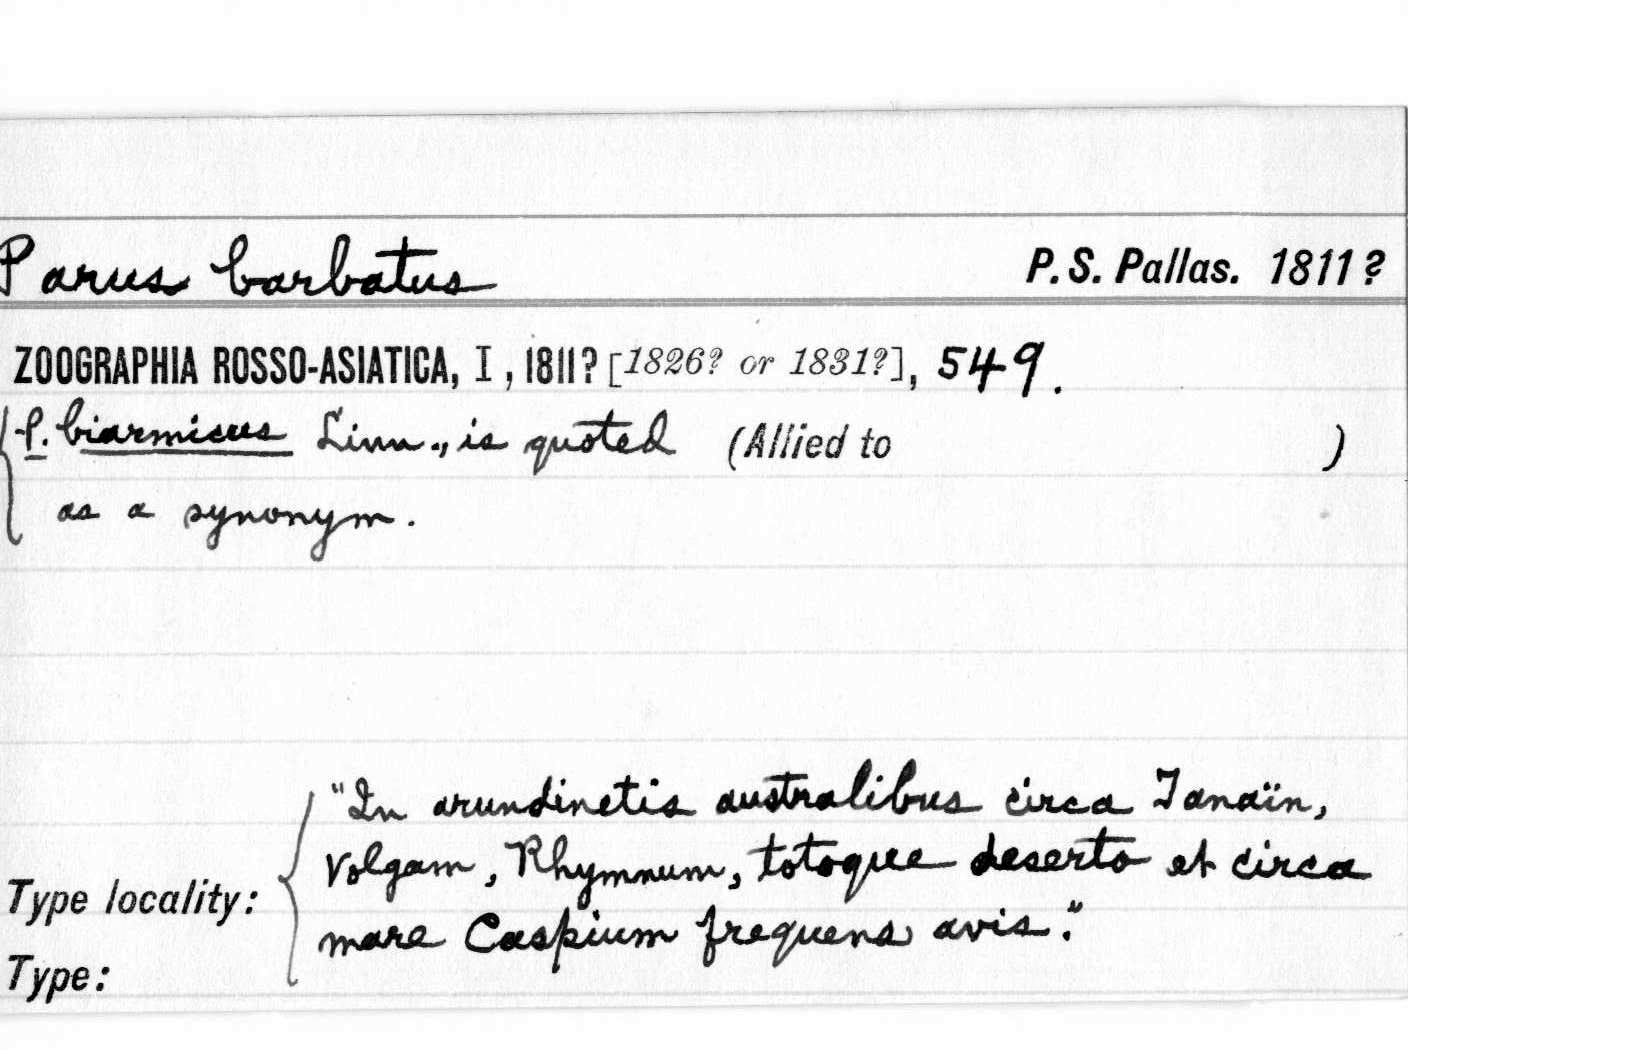 Parus barbatus P. S. Pallas. 1811?
ZOOGRAPHIA ROSSO-ASIATICA, I, 1811? [1826? or 1831?], 549.
P. biarmicus Linn., is quoted (Allied to )
as a synonym.
"In arundinetis australibus circa Tanaïn,
Volgam, Rhymnum, totoque deserto et circa
Type locality:
mare Caspium frequens avis."
Type: